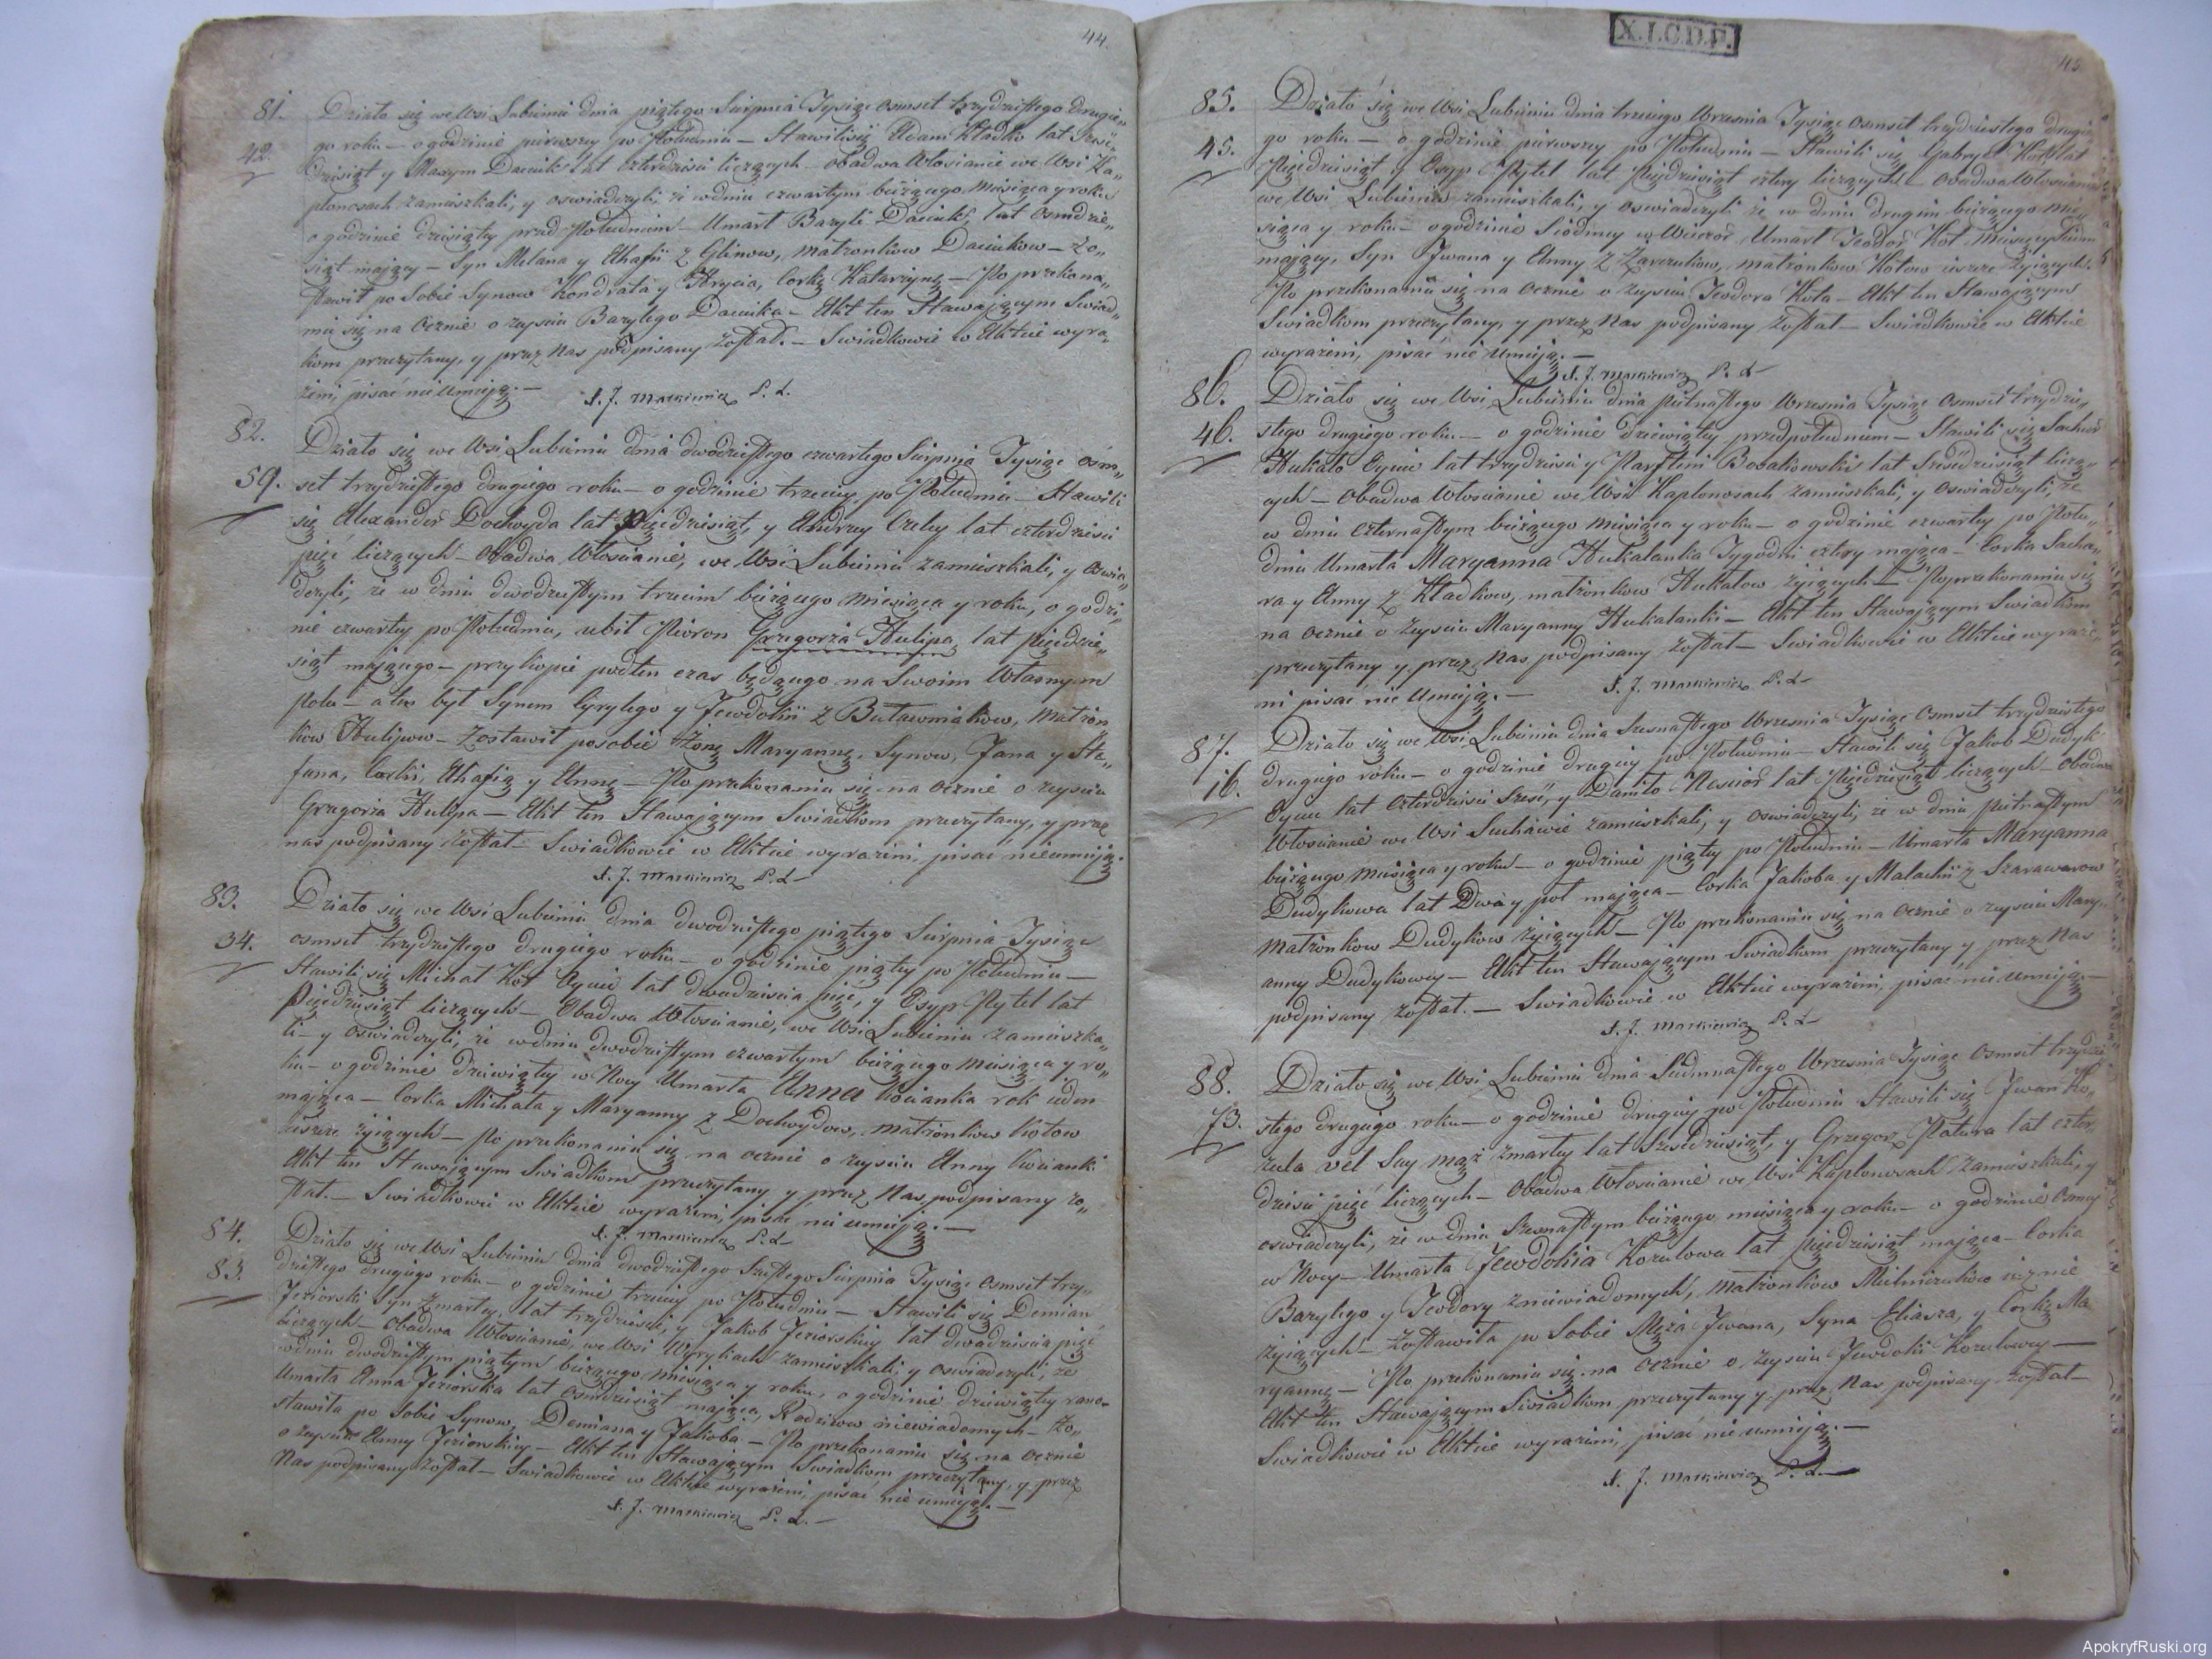 44.
81.
42.
Działo się we Wsi Lubieniu dnia piątego Sierpnia Tysiąc osmset trzydziestego drugie„
go roku — o godzinie pierwszey po Południu — Stawili się Adam Kładko lat sześć„
dziesiąt y Maxym Daciuk lat czterdzieści liczących — obadwa Włoscianie we Wsi Ka„
plonosach zamieszkali, y oswiadczyli, że w dniu czwartym bieżącego miesiąca y roku
o godzinie dziesiątey przed Południem — Umarł Bazyli Daciuk, lat osmdzie„
siąt maiący — Syn Melana y Ahafii z Glinow, małżonkow Daciukow — Zo„
stawił po Sobie Synow Kondrata y Hrycia, Corkę Katarzynę — Po przekona„
niu się na ocznie o zeysciu Bazylego Daciuka — Akt ten Stawaiącym Swiad„
kom przeczytany, y przez Nas podpisany został. — Swiadkowie w Akcie wyra„
żeni, pisać nie umieią. —
X. J. Markiewicz P. L.
82.
59.
Działo się we Wsi Lubieniu dnia dwodziestego czwartego Sierpnia Tysiąc osm„
set trzydziestego drugiego roku — o godzinie trzeciey po Południu — Stawili
się Alexander Dochwyda lat Pięćdziesiąt, y Andrzey Celey lat czterdzieści
pięć liczących — Obadwa Włoscianie, we Wsi Lubieniu zamieszkali, y oswia„
dczyli, że w dniu dwodziestym trzecim bieżącego miesiąca y roku, o godzi„
nie czwartey po Południu, ubił Pioron Grzegorza Hulipa, lat pięćdzie„
siąt maiącego — przykopie podten czas będącego na Swoim Własnym
Polu — a ten był Synem Cyrylego y Jewdokii z Butawniakow, małżon
kow Hulipow — Zostawił posobie Żonę Maryannę, Synow, Jana y Ste„
fana, Corki, Ahafią y Annę — Po przekonaniu się na ocznie o zeysciu
Grzegorza Hulipa — Akt ten Stawaiącym Swiadkom przeczytany, y przez
nas podpisany został — Swiadkowie w Akcie wyrażeni, pisać nieumieią.
X. J. Markiewicz P. L —
83.
34.
Działo się we Wsi Lubieniu dnia dwodziestego piątego Sierpnia Tysiąc
osmset trzydziestego drugiego roku — o godzinie piątey po Południu —
Stawili się Michał Kot Oyciec lat dwadziescia pięć, y Osyp Pytel lat
Pięćdziesiąt liczących — Obadwa Włoscianie, we Wsi Lubieniu zamieszka„
li — y oswiadczyli, że w dniu dwodziestym czwartym bieżącego miesiąca y ro„
ku — o godzinie dziewiątey w Nocy Umarła Anna Kocianka rok ieden
maiąca — Corka Michała y Maryanny z Dochwydow, małżonkow Kotow
ieszcze żyiących — Po przekonaniu się na ocznie o zeysciu Anny Kocianki
Akt ten Stawaiącym Swiadkom przeczytany y przez Nas podpisany zo„
stał. — Swiadkowie w Akcie wyrażeni, pisać nie umieią. —
X. J. Markiewicz P. L —
84.
83.
Działo się we Wsi Lubieniu dnia dwodziestego Szostego Sierpnia Tysiąc osmset trzy„
dziestego drugiego roku — o godzinie trzeciey po Południu — Stawili się Demian
Jeziorski Syn Zmarłey, lat trzydzieści, y Jakob Jeziorskiey lat dwadziescia pięć
liczących — obadwa Włoscianie, we Wsi Wyrykach zamieszkali, y oswiadczyli, że
w dniu dwodziestym piątym bieżącego miesiąca y roku, o godzinie dziewiątey rano
Umarła Anna Jeziorska lat osmdziesiąt maiąca, Rodzicow niewiadomych — Zo„
stawiła po Sobie Synow, Demiana y Jakoba — Po przekonaniu się na ocznie
o zeysciu Anny Jeziorskiey — Akt ten Stawaiącym Swiadkom przeczytany, y przez
Nas podpisany został — Swiadkowie w Akcie wyrażeni, pisać nie umieią. —
X. J. Markiewicz P. L. —
X.I.C.D.F.
45
85.
45.
Działo się we Wsi Lubieniu dnia trzeciego Wrzesnia Tysiąc osmset trzydziestego drugie
go roku — o godzinie pierwszey po Południu — Stawili się Gabryel Kot lat
Pięćdziesiąt y Osyp Pytel lat Pięćdziesiąt cztery liczących — obadwa Włoscianie
we Wsi Lubieniu zamieszkali, y oswiadczyli że w dniu drugim bieżącego mie„
siąca y roku — o godzinie Siodmey w Wieczor Umarł Teodor Kot Miesięcy Siedm
maiący, Syn Jwana y Anny z Zarczukow, małżonkow Kotow ieszcze żyiących.
Po przekonaniu się na ocznie o zeysciu Teodora Kota — Akt ten Stawaiącym
Swiadkom przeczytany, y przez Nas podpisany został — Swiadkowie w Akcie
wyrażeni, pisać nie umieią. —
X. J. Markiewicz P. L —
86.
46.
Działo się we Wsi Lubieniu dnia Pietnastego Wrzesnia Tysiąc osmset trzydzie„
stego drugiego roku — o godzinie dziewiątey przedpołudnium — Stawili się Sachar
Hukało Oyciec lat trzydzieści y Parfteni Bobakowski lat Sześćdziesiąt licza„
cych — obadwa Włoscianie we Wsi Kaplonosach zamieszkali, y oswiadczyli, że
w dniu czternastym bieżącego miesiąca y roku — o godzinie czwartey po Połu„
dniu Umarła Maryanna Hukalanka Tygodni cztery maiąca — Corka Sacha„
ra y Anny z Kładkow, małżonkow Hukałow żyiących — Poprzekonaniu się
na ocznie o zeysciu Maryanny Hukalanki — Akt ten Stawaiącym Swiadkom
przeczytany y przez Nas podpisany został — Swiadkowie w Akcie wyraże„
ni pisać nie umieią. —
X. J. Markiewicz P. L —
87.
16.
Działo się we Wsi Lubieniu dnia Szesnastego Wrzesnia Tysiąc osmset trzydziestego
drugiego roku — o godzinie drugiey po Południu — Stawili się Jakob Dudyk
Oyciec lat czterdzieści sześć, y Daniło Nescior lat Pięćdziesiąt liczących — obadwa
Włoscianie we Wsi Suchawie zamieszkali, y oswiadczyli, że w dniu pietnastym
bieżącego miesiąca y roku — o godzinie piątey po Południu — Umarła Maryanna
Dudykowa lat Dwa y pół maiąca — Corka Jakoba y Malachii z Szarawarow
małżonkow Dudykow żyiących — Po przekonaniu się na ocznie o zeysciu Mary„
anny Dudykowey — Akt ten Stawaiącym Swiadkom przeczytany y przez Nas
podpisany został. — Swiadkowie w Akcie wyrażeni, pisać nie umieią. —
X. J. Markiewicz P. L —
88.
73.
Działo się we Wsi Lubieniu dnia Siedmnastego Wrzesnia Tysiąc osmset trzydzie
stego drugiego roku — o godzinie drugiey po Południu Stawili się Jwan Ko„
zula vel Say mąż zmarłey lat Sześćdziesiąt, y Grzegorz Patura lat czter„
dzieści pięć liczących — Obadwa Włoscianie we Wsi Kaplonosach zamieszkali, y
oswiadczyli, że w dniu Szesnastym bieżącego miesiąca y roku — o godzinie osmey
w Nocy — Umarła Jewdokia Kozulowa lat pięćdziesiąt maiąca — Corka
Bazylego y Teodory zniewiadomych, małżonkow Mielniczukow iuż nie
żyiących — Zostawiła po Sobie Męża Jwana, Syna Eliasza, y Corkę Ma
ryannę — Po przekonaniu się na ocznie o zeysciu Jewdoki Kozulowey —
Akt ten Stawaiącym Swiadkom przeczytany y przez Nas podpisany został —
Swiadkowie w Akcie wyrażeni, pisać nie umieią. —
X. J. Markiewicz P. L. —
ApokryfRuski.org